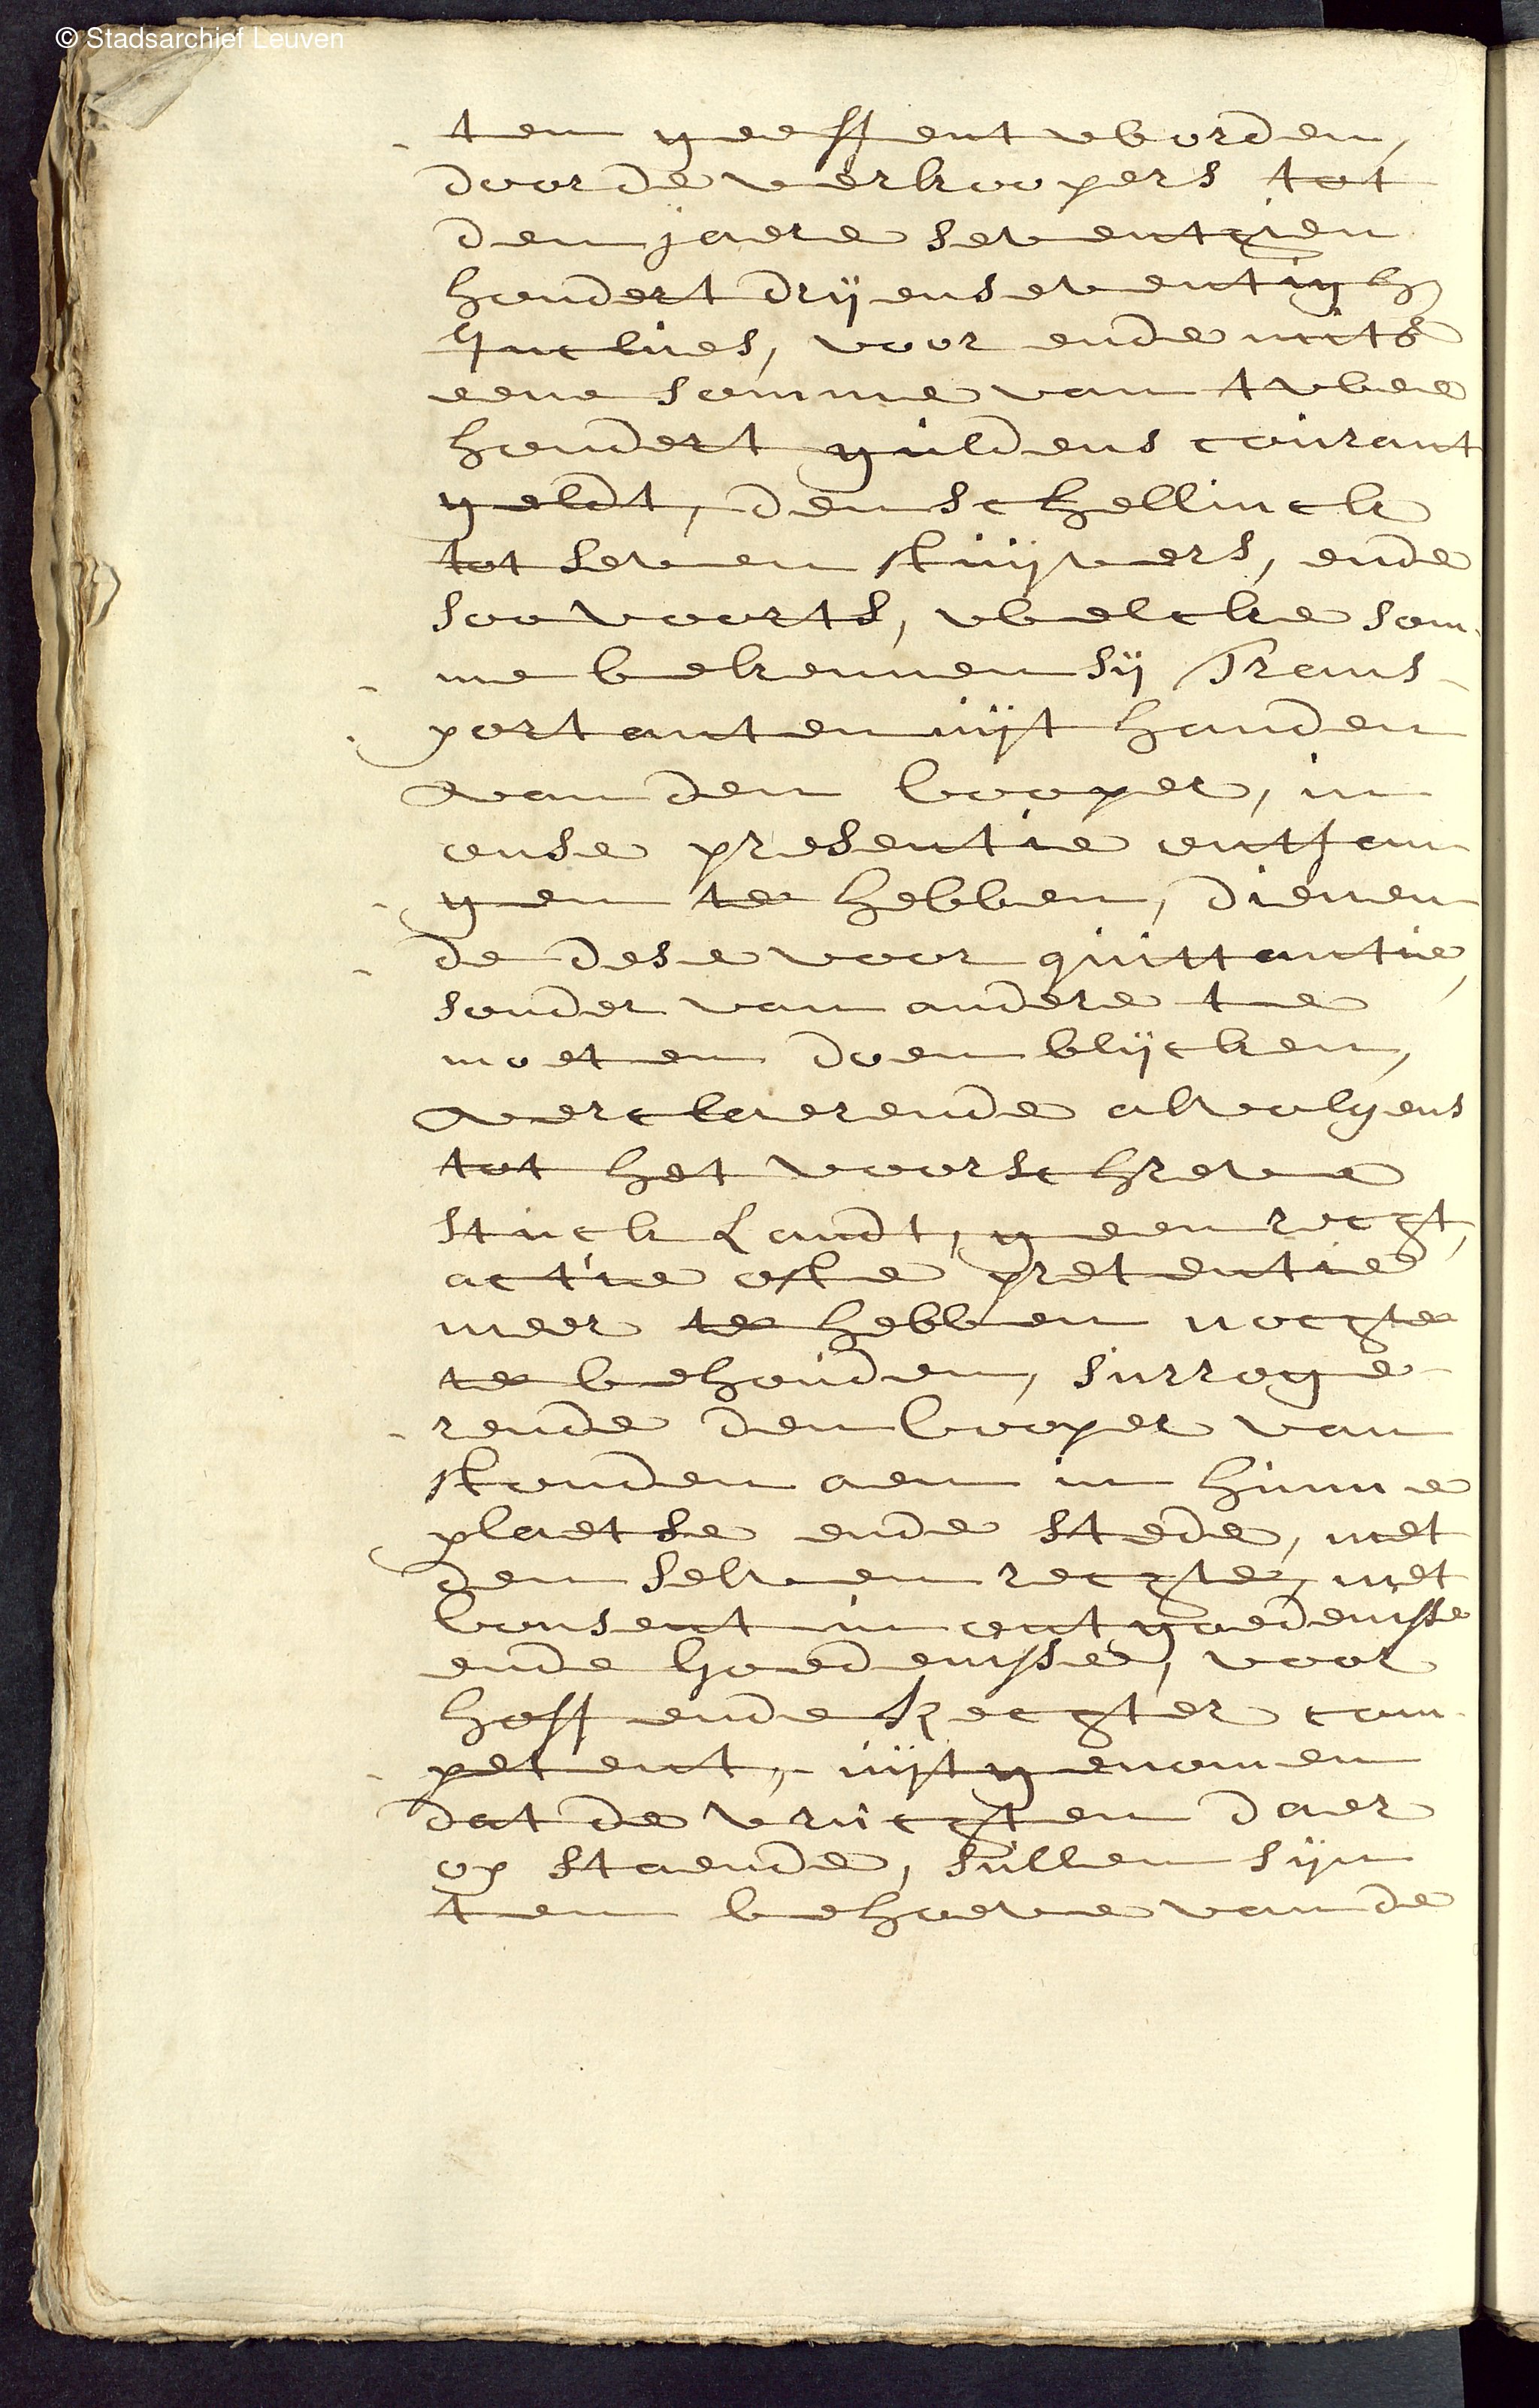 © Stadsarchief Leuven
ten geeffent worden,
door de verkoopers tot
den jaere seventhien
hondert drij en seventigh
Incluies, voor ende mits
eene somme van twee
hondert guldens courant
geldt, den schellinck
tot seven stuijvers, ende
soo voorts, welcke som-
me bekennen sij Trans-
portanten uijt handen
van den Cooper, in
onse presentie ontfan
gen te hebben, dienen
de dese voor quittantie,
sonder van andere te
moeten doen blijcken,
verclaerende alvolgens
tot het voorschreve
stuck Landt, geen recgt,
actie ofte pretentie
meer te hebben nocgte
te behouden, surroge-
rende den Cooper van
stonden aen in hunne
plaetse ende stede, met
den selven recgte, met
Consent in ontgoedenisse
ende Goedenisse, voor
hoff ende Recgter com-
petent, uijtgenomen
dat de vrucgten daer
op staende, sullen sijn
ten behoeve van de